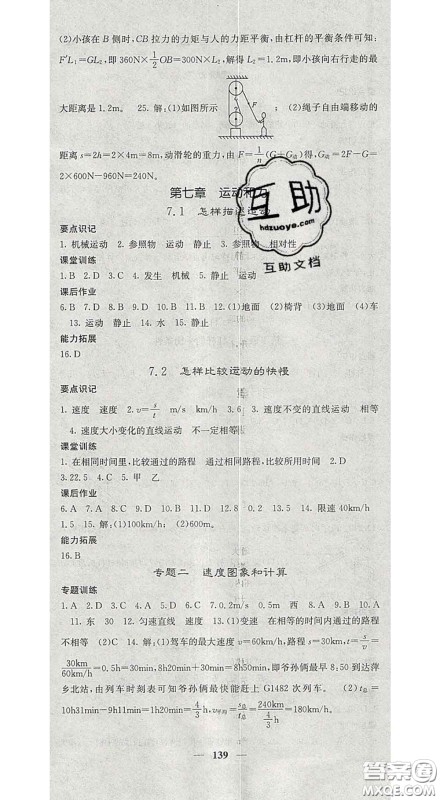 (2)小孩在B侧时,CB拉力的力矩与人的力距平衡,由杠杆的平衡条件可知:
F'L₁=GL₂,即360N×1/2OB=300N×L₂,解得L₂=1.2m,即小孩向右行走的最
大距离是1.2m。 25.解:(1)如图所示 ;(2)绳子自由端移动的
距离s=2h=2×4m=8m,动滑轮的重力,由F=1/n(G+G动)得,G动=2F-G=
2×600N-960N=240N。
第七章 运动和力
7.1 怎样描述运动
要点识记
1.机械运动 2.参照物 运动 静止 3.参照物 相对性
课堂训练
1.B 2.D 3.C 4.发生 机械 5.运动 静止
课后作业
6.B 7.B 8.B 9.D 10.B 11.B 12.(1)地面 (2)椅背 (3)地面 (4)车
13.运动 静止 14.水 15.静止
能力拓展
16.D
7.2 怎样比较运动的快慢
要点识记
1.速度 速度 2.v=s/t m/s km/h 3.6 3.速度不变的直线运动 相等
4.速度大小变化的直线运动 不一定相等
课堂训练
1.在相同时间里,比较通过的路程 通过相同路程,比较所用时间 2.D
3.22.5 4.C 5.甲 乙
课后作业
6.A 7.A 8.C 9.D 10.C 11.B 12.3 13.0.04km/s 14.40km/h
1.5 15.解:(1)100km/h;(2)90km/h
能力拓展
16.B
专题二 速度图象和计算
专题训练
1.A 2.D 3.C 4.A 5.C 6.D 7.0.2m/s 8.0.5m 9.0.5 10.50
11.东 30 12.匀速直线 速度 13.(1)0.9m 0.18m/s (2)通过的路程
不相等 (2)C 14.解:(1)驾车的最大速度v=60km/h,路程s=30km,t=s/v=
30km/60km/h=0.5h=30min,8h20min+30min=8h50min,即爷孙俩最早8:50到达萍
乡北站,由列车时刻表可知爷孙俩最快能赶上G1482次列车。 (2)t总=
10h31min-9h11min=1h20min=4/3h,v平均=s总/t总=240km/4/3h=180km/h。
139
互助
hdzuoye.com
互助文档
答案圈
MXQE.COM